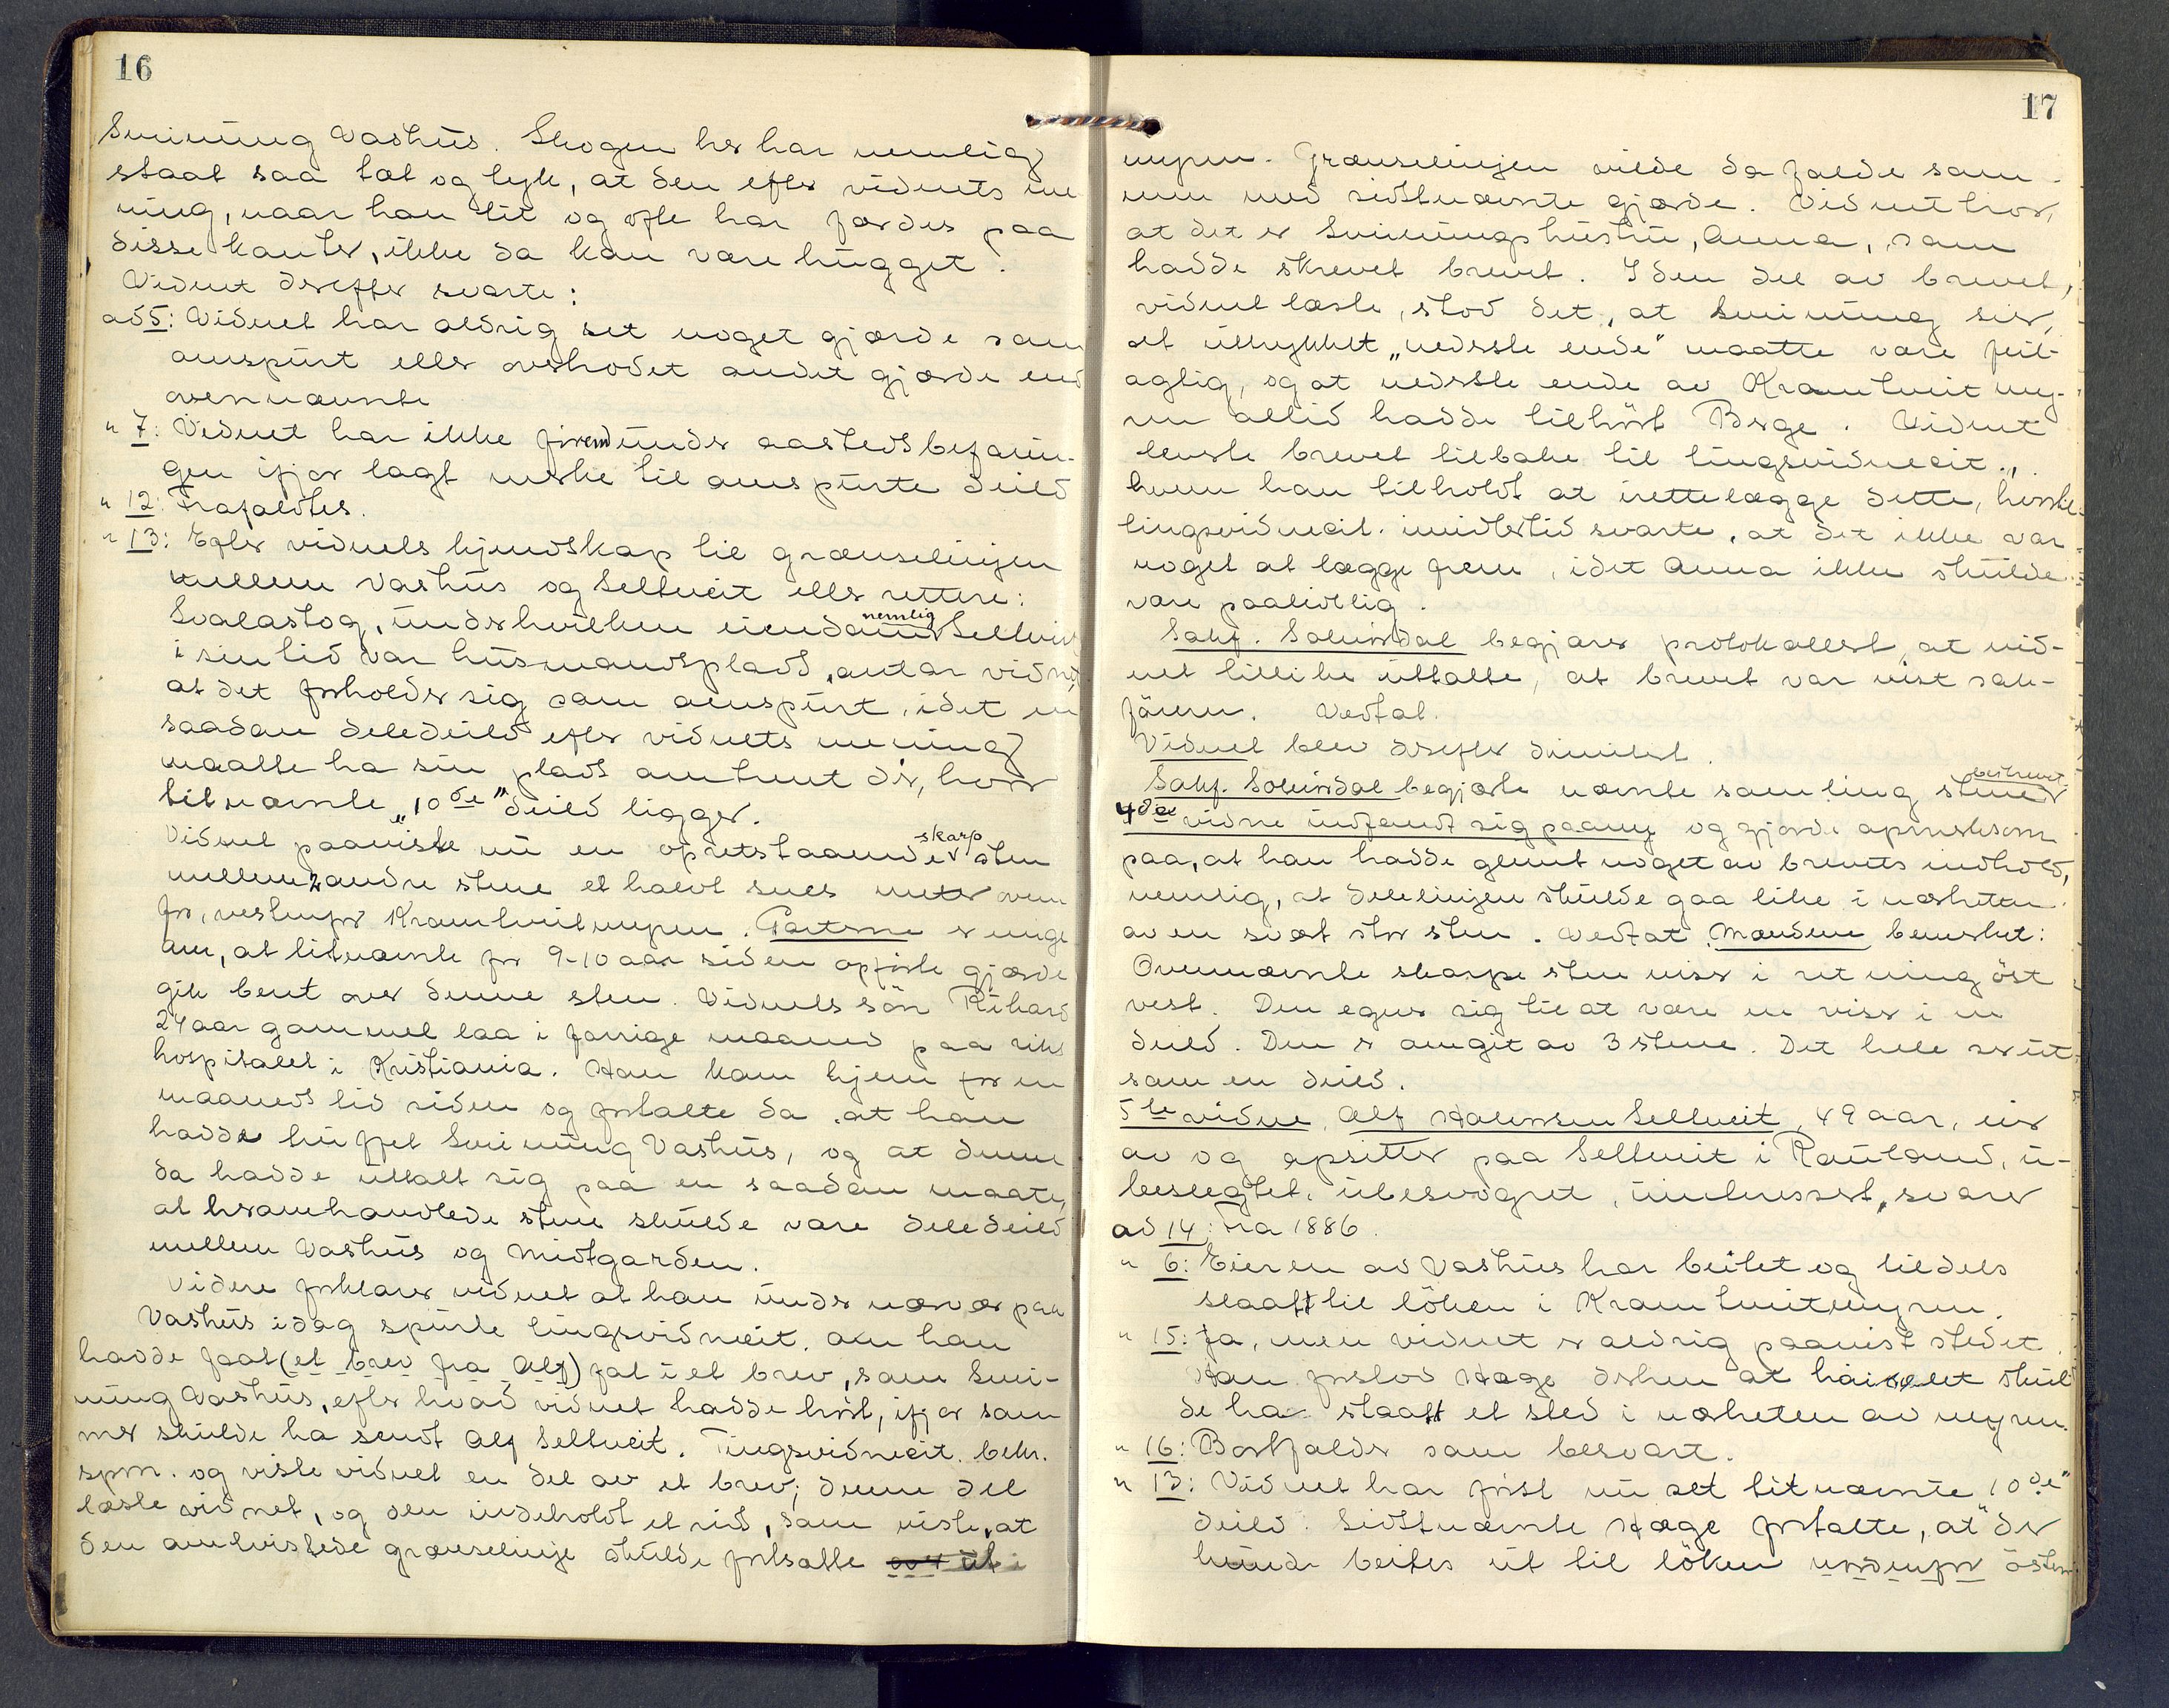 16
Svinung Vashus. Skogen her har nemlig
staat saa tæt og tyk, at den efter vidnets me
ning, naar han tit og ofte har færdes paa
disse kanter, ikke da kan være hugget.
Vidnet derefter svarte:
ad 5: Vidnet har aldrig set noget gjærde som
omspurt eller overhodet andet gjærde end
ovennævnte
" 7: Vidnet har ikke før end under aastedsbefarin-
gen ifjor lagt merke til omspurte deild
" 12: Frafaldtes.
" 13: Efter vidnets kjendskap til grænselinjen
mellem Vashus og Seltveit eller rettere:
Svalastog, under hvilken eiendom nemlig Seltveit
i sin tid var husmandsplads, antar vidnet,
at det forholder sig som omspurt, idet en
saadan deledeild efter vidnets mening
maatte ha sin plads omtrent der, hvor
titnævnte "10de" deild ligger.
Vidnet paaviste nu en opretstaaende skarp sten
mellem 2 andre stene et halvt snes meter oven
for, vestenfor Kramtveitmyren. Parterne er enige
om, at titnævnte for 9-10 aar siden opførte gjærde
gik bent over denne sten. Vidnets søn Rikard
24 aar gammel laa i forrige maaned paa riks
hospitalet i Kristiania. Han kom hjem for en
maaneds tid siden og fortalte da, at han
hadde truffet Svinung Vashus, og at denne
da hadde uttalt sig paa en saadan maate,
at heromhandlede stene skulde være deledeild
mellem Vashus og Midtgarden.
Videre forklarer vidnet at han under nærvær paa
Vashus idag spurte tingsvidneit. om han
hadde faat (et brev fra Alf) fat i et brev, som Svi-
nung Vashus, efter hvad vidnet hadde hørt, ifjor som
mer skulde ha sendt Alf Seltveit. Tingsvidneit. bekr.
spm. og viste vidnet en del av et brev; denne del
læste vidnet, og den indeholdt et rids, som viste, at
den omtvistede grænselinje skulde fortsætte over ut i
17
myren. Grænselinjen vilde da falde sam-
men med sidstnævnte gjærde. Vidnet tror,
at det er Svinungs hustru, Anna, som
hadde skrevet brevet. I den del av brevet,
vidnet læste, stod det, at Svinung sier,
at uttrykket "nederste ende" maatte være feil-
agtig, og at nederste ende av Kramtveitmy-
ren altid hadde tilhørt Berge. Vidnet
leverte brevet tilbake til tingsvidneit.,
hvem han tilholdt at irettelægge dette, hvortil
tingsvidneit. imidlertid svarte, at det ikke var
noget at lægge frem, idet Anna ikke skulde
være paalidelig.
Sakf. Solverdal begjærer protokollert, at vid-
net tillike uttalte, at brevet var vist sak-
føreren. Vedtat.
Vidnet blev derefter dimitert.
Sakf. Solverdal begjærte nævnte samling stener beskrevet
4de vidne indfandt sig paany og gjorde opmerksom
paa, at han hadde glemt noget av brevets indhold,
nemlig, at delelinjen skulde gaa like i nærheten
av en svært stor sten. Vedtat. Mændene bemerket:
Ovennævnte skarpe sten viser i retning øst
vest. Den egner sig til at være en viser i en
deild. Den er omgit av 3 stene. Det hele ser ut
som en deild.
5te vidne, Alf Halvorsen Seltveit, 49 aar, eier
av og opsitter paa Seltveit i Rauland, u-
beslegtet, ubesvogret, uinteressert, svarer
ad 14: Fra 1886.
" 6: Eieren av Vashus har beitet og tildels
slaatt til løken i Kramtveitmyren.
" 15: Ja, men vidnet er aldrig paavist stedet.
Han forstod Hæge derhen at haiselet skul
de ha staatt et sted i nærheten av myren.
" 16: Bortfalder som besvart.
" 13: Vidnet har først nu set titnævnte "10de"
deild. Sidstnævnte Hæge fortalte, at der
kunde beites ut til løken nordenfor østen